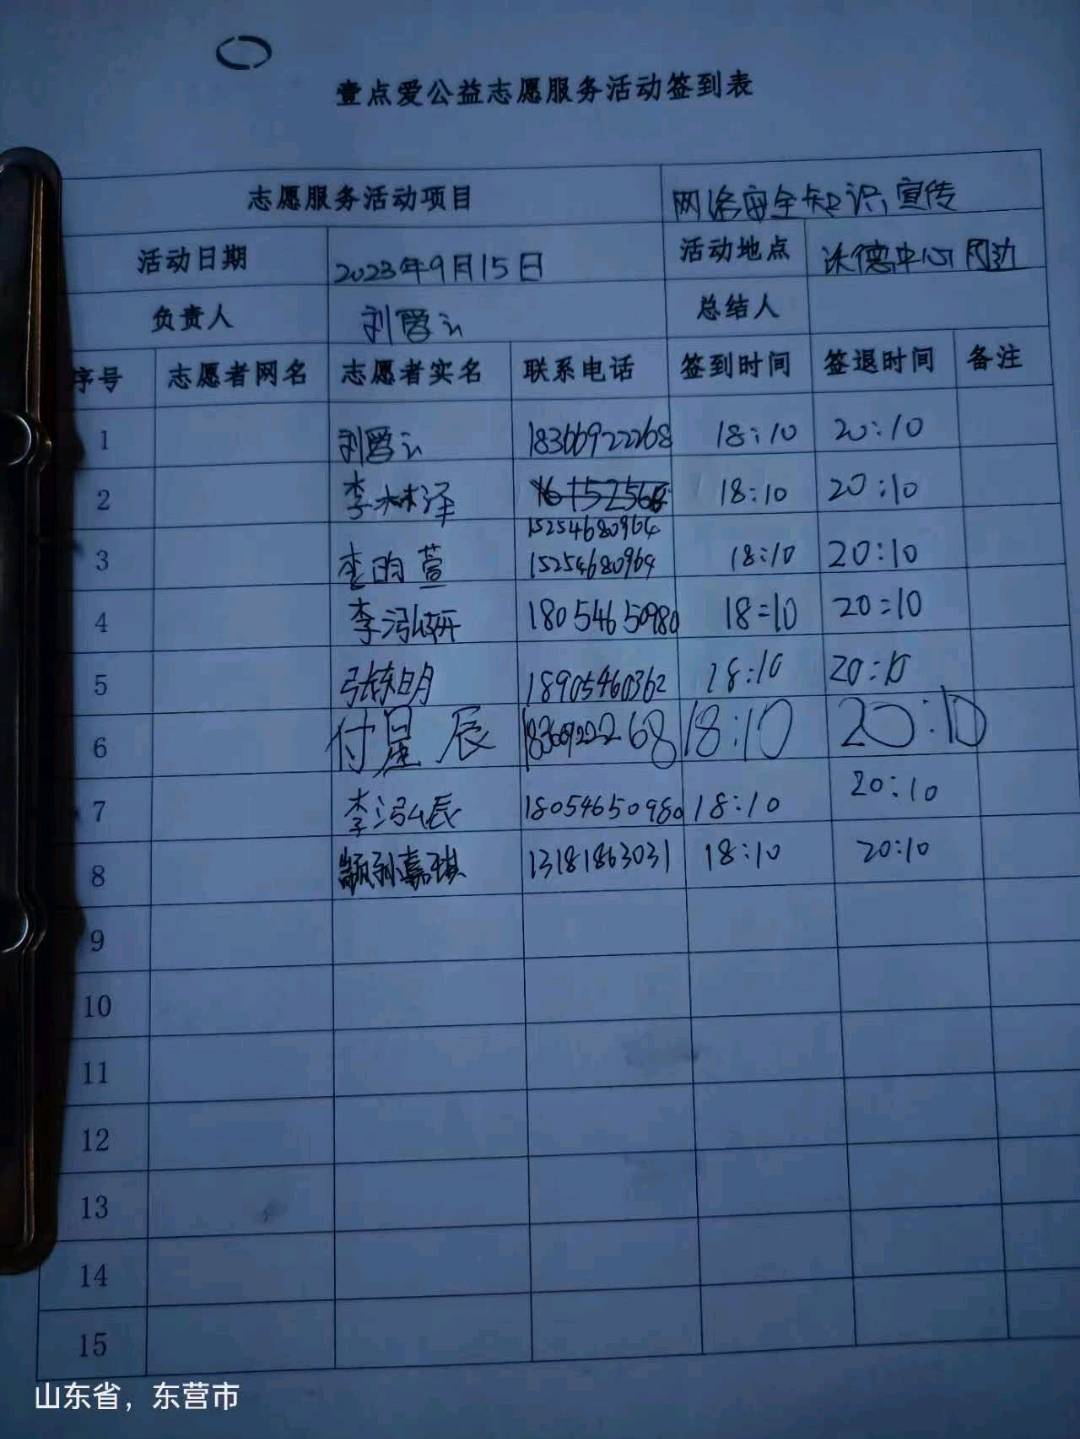 壹点爱公益志愿服务活动签到表
志愿服务活动项目 网络安全知识宣传
活动日期 2023年9月15日 活动地点 沃德中心周边
负责人 总结人
序号 志愿者网名 志愿者实名 联系电话 签到时间 签退时间 备注
1 18366922268 18:10 20:10
2 李林泽 18:10 20:10
15254680964
3 李昀萱 15254680964 18:10 20:10
4 李泓妍 18054650980 18:10 20:10
5 张东明 18905460362 18:10 20:10
6 付星辰 18366922268 18:10 20:10
7 李泓辰 18054650980 18:10 20:10
8 颛孙嘉琪 13181863031 18:10 20:10
9
10
11
12
13
14
15
山东省，东营市